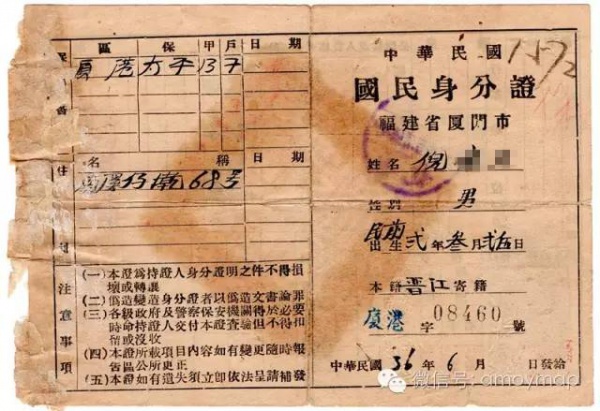 區 保 甲 戶 日 期
厦港 太平 13 7
名 稱 日 期
68号
注意事項
(一)本證為持證人身分證明之件不得損
壞或轉讓
(二)偽造變造身分證者以偽造文書論罪
(三)各級政府及警察保安機關得於必要
時命持證人交付本證查驗但不得扣
留或沒收
(四)本證所載項目內容如有變更隨時報
告區公所更正
(五)本證如有遺失須立卽依法呈請補發
中華民國
國民身分證
福建省厦門市
姓名 倪
性別 男
民前
出生 弍年叁月弍五日
本籍 晋江 寄籍
厦港 字 08460 號
中華民國 36 年 6 月 日發給
微信号: amoymap